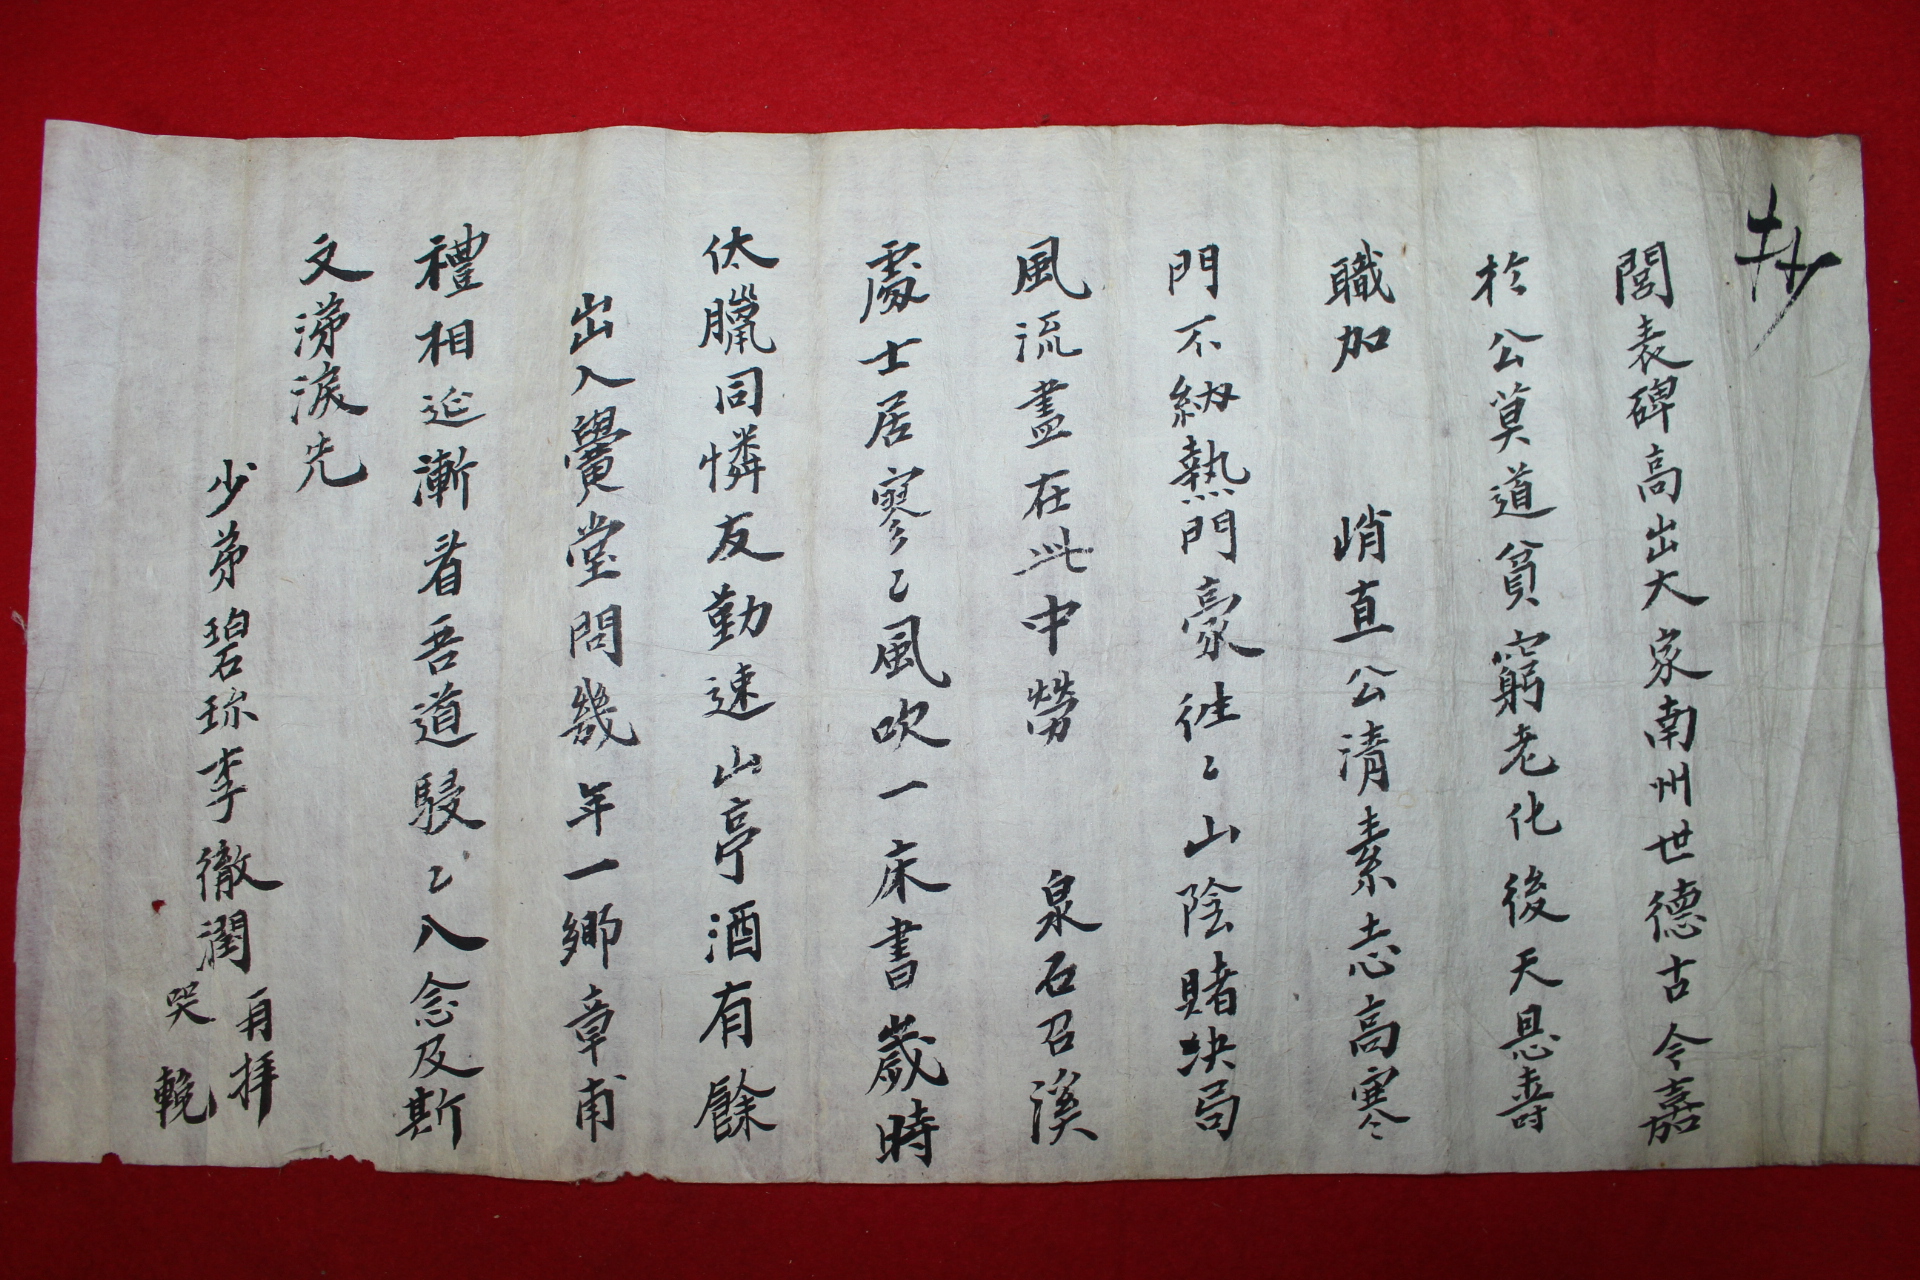 抄
閭表碑高出大家南州世德古今嘉
於公莫道貧窮老化後天恩壽
職加　　峭直公清素志高寒
門不納熱門豪往〻山陰賭決局
風流盡在此中勞　　泉石召溪
處士居寥〻風吹一床書歲時
伏臘同憐友勤速山亭酒有餘
出入黌堂問幾年一鄉章甫
禮相延漸看吾道駸〻八念及斯
文涕淚先
少弟碧珎李徹潤再拜
哭輓